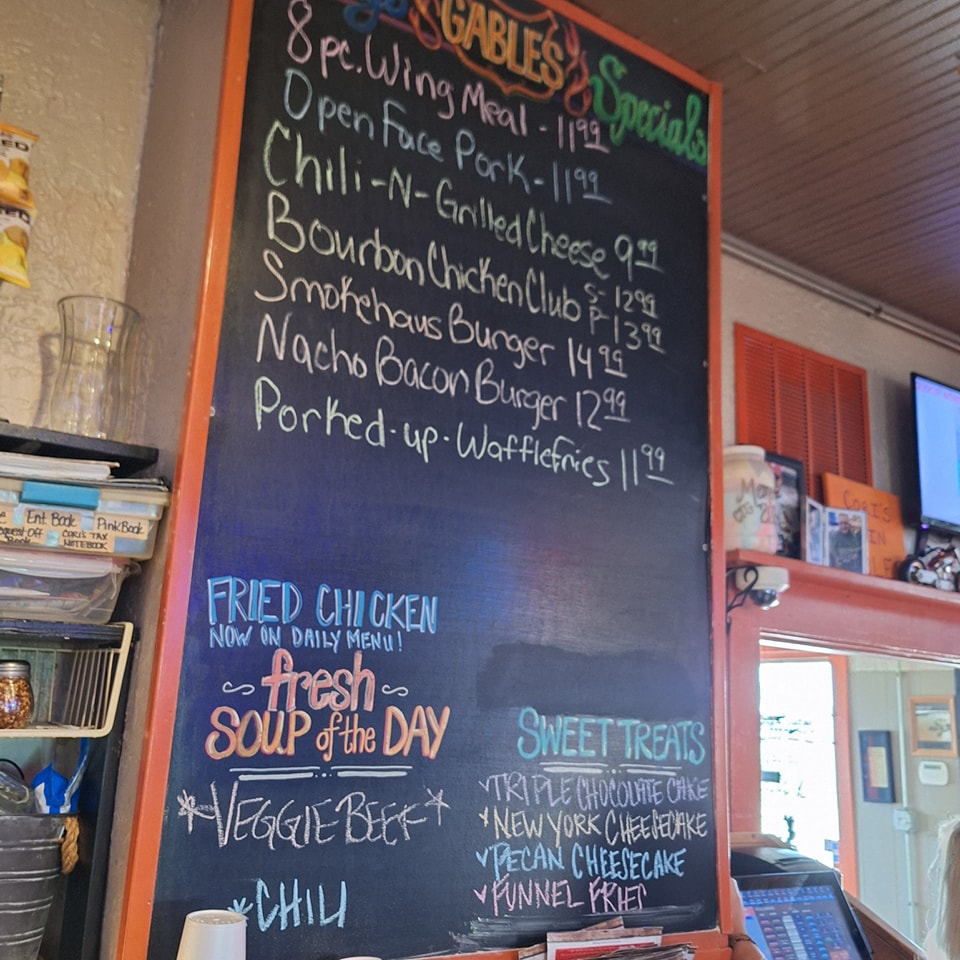 GABLES
Specials
8 pc. Wing Meal - 11 99
Open Face Pork - 11 99
Chili-N-Grilled Cheese 9 99
Bourbon Chicken Club S- 12 99
P- 13 99
Smokehaus Burger 14 99
Nacho Bacon Burger 12 99
Porked-up-Waffle Fries 11 99
FRIED CHICKEN
NOW ON DAILY MENU!
~fresh~
SOUP of the DAY
*VEGGIE BEEF*
*CHILI
SWEET TREATS
✓TRIPLE CHOCOLATE CAKE
✓NEW YORK CHEESECAKE
✓PECAN CHEESECAKE
✓FUNNEL FRIES
Ent. Book
Pink Book
CORI'S TAX
NOTEBOOK
CORI'S
IN